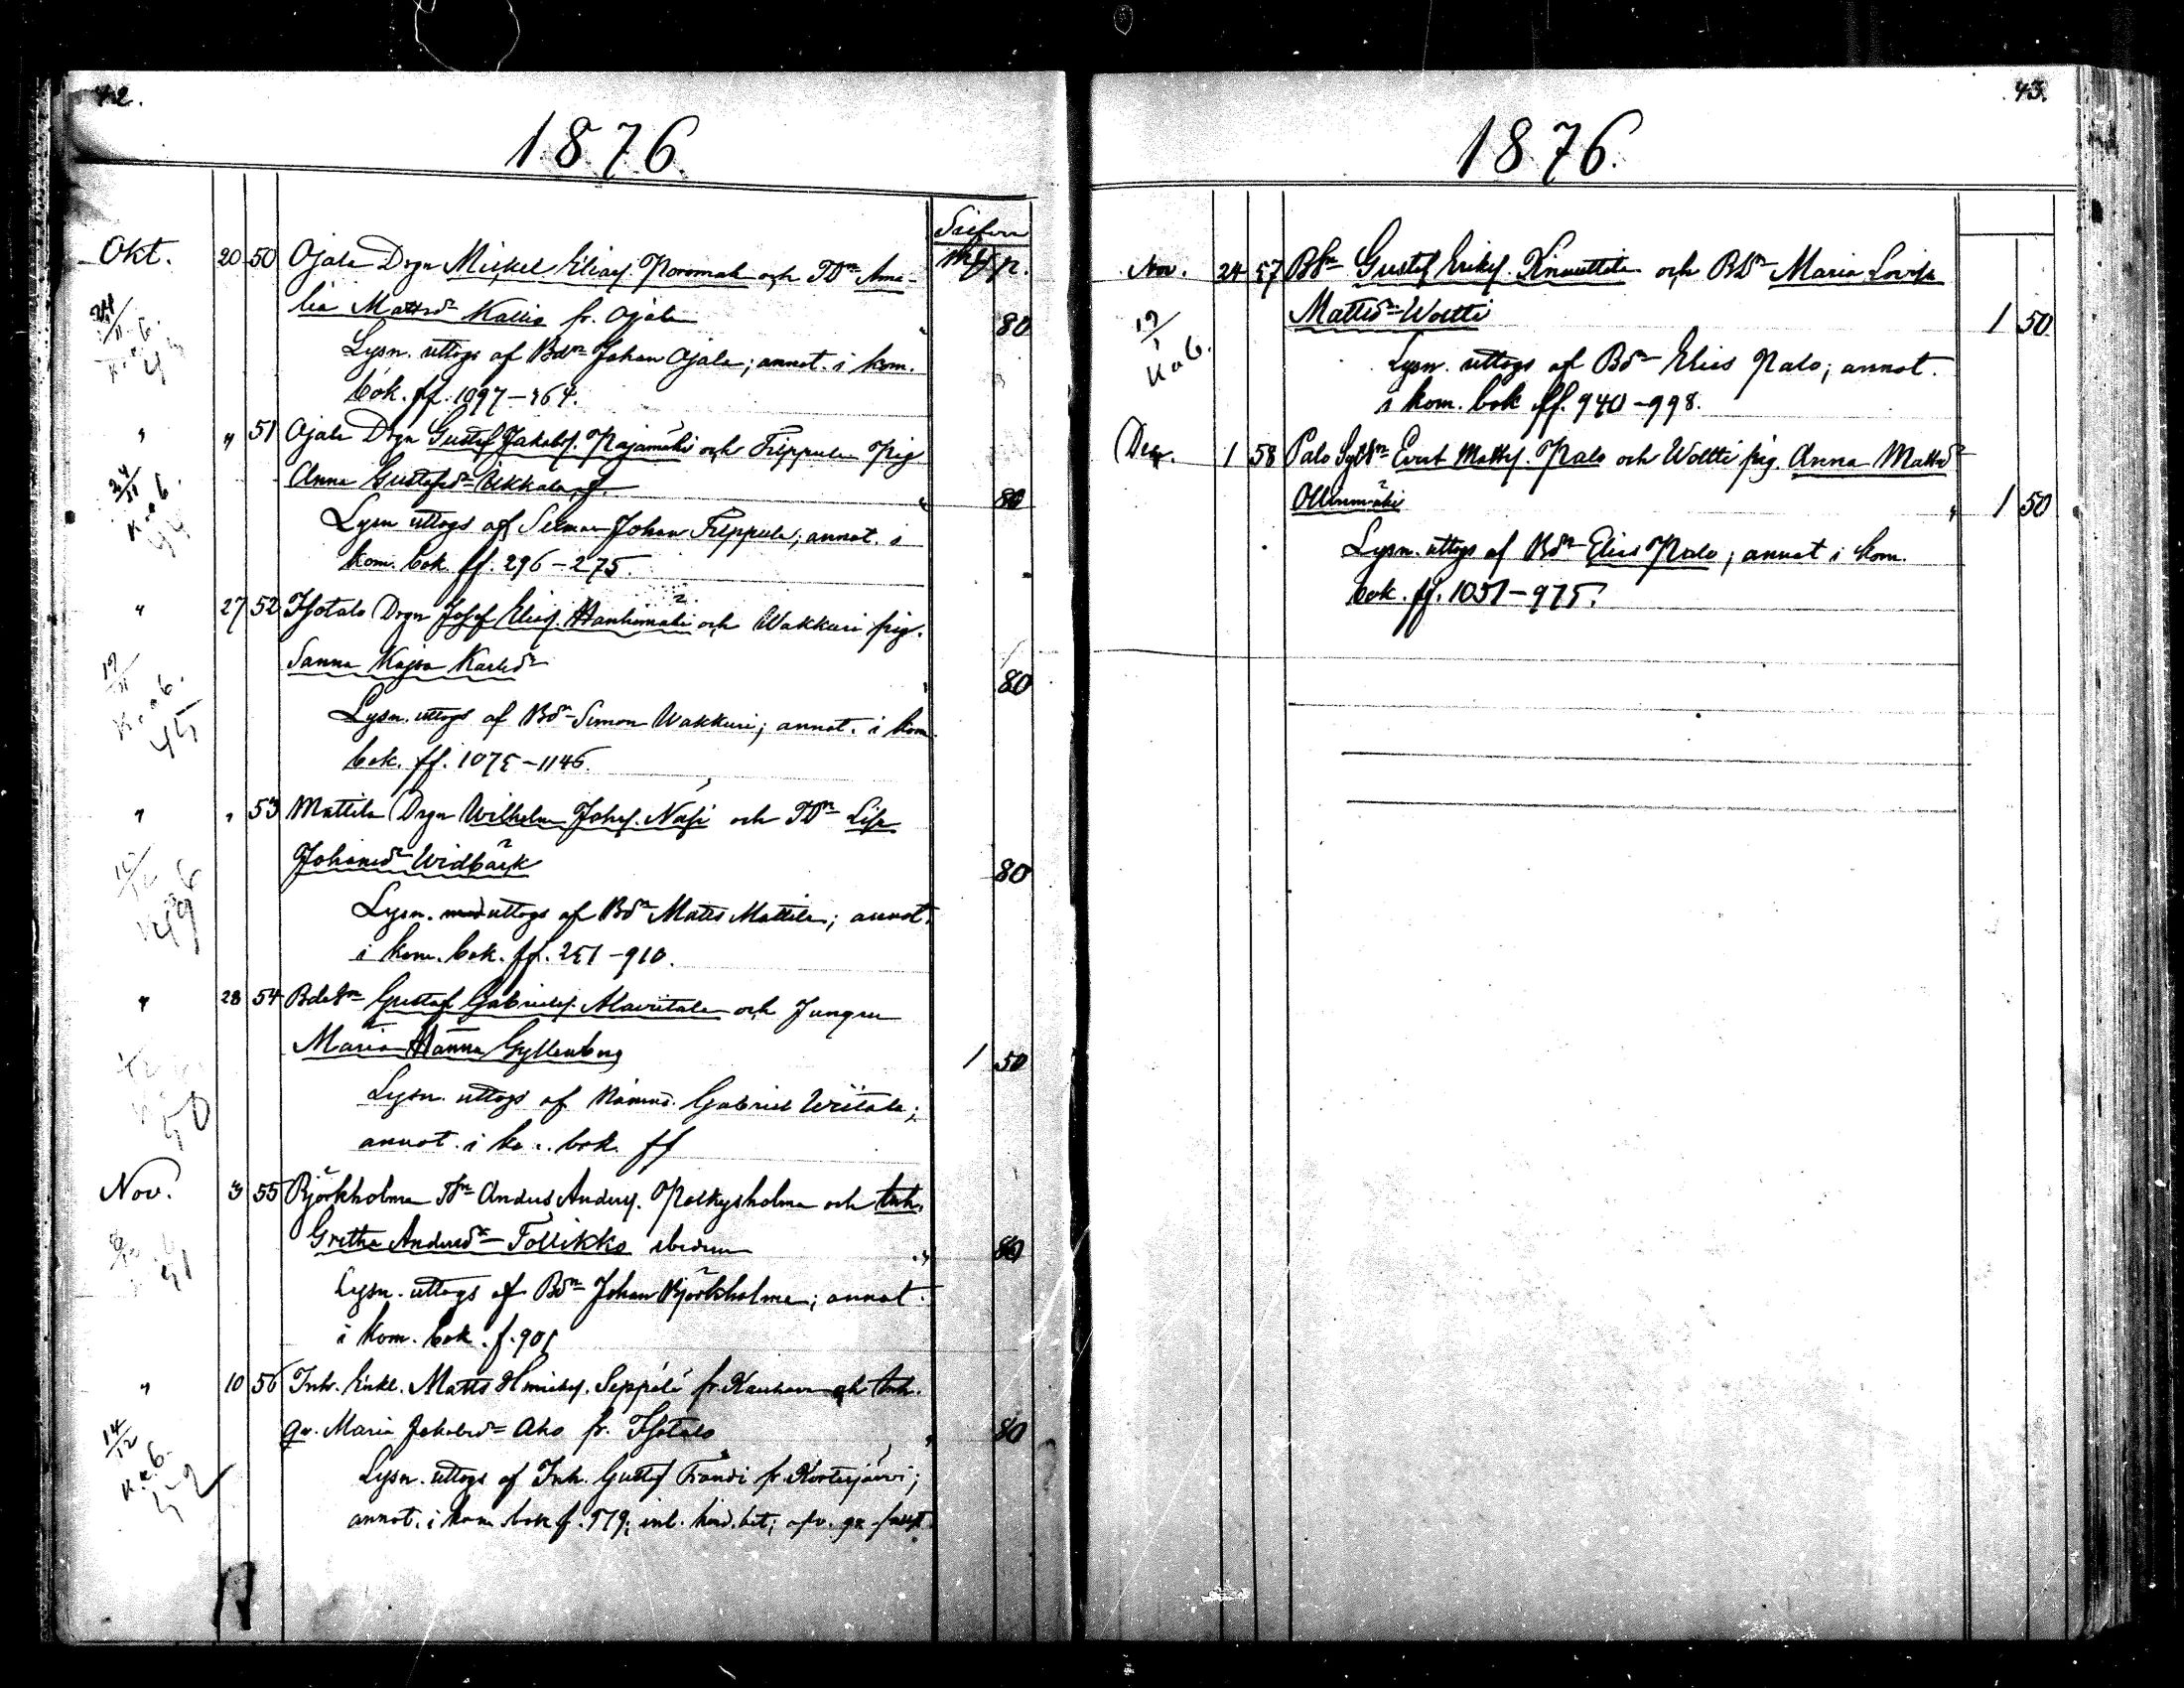 42.
1876.
Saifvor
Okt. 20 50 Ojala Drgn Mickel Eliass. Poromak och TDr Ama-
lia Mattsdr Kallio fr. Ojala " 80
24/11
Lysn. uttogs af Bdn Johan Ojala; annot. i kom.
bok. ff. 1097-464.
" " 51 Ojala Drgn Gustaf Jakobs. Rajamäki och Filppula pig
Anna Gustafsdr Ukkola " 80
24/11
Lysn uttogs af Johan Filppula; annot. i
kom. bok. ff. 296-275.
" 27 52 Isotalo Drgn Josef Elias. Hanhimäki och Wakkuri pig.
Sanna Kajsa Karlsdr " 80
45
Lysn. uttogs af Bdn Simon Wakkuri; annot. i kom.
bok. ff. 1075-1146.
" " 53 Mattila Drgn Wilhelm Johs. Näsi och TDr Lisa
Johansdr Widbäck 80
49
Lysn. uttogs af Bdn Matts Mattila; annot.
i kom. bok. ff. 251-910.
" 28 54 Gustaf Gabriels. Alawiitala och Jungfru
Maria Hanna Gyllenberg 1 50
50
Lysn. uttogs af Nämnd. Gabriel Wiitala;
annot. i ko.. bok. ff
Nov. 3 55 Björkholma Anders Anders. Polkysholma och Inh.
Gretha Andersdr Tollikko ibidem " 80
51
Lysn. uttogs af Bdn Johan Björkholma; annot.
i kom. bok. f. 901
" 10 56 Inh. Enkl. Matts Hinriks. Seppälä fr. Kauhava och Inh.
qv. Maria Jakobsdr Aho fr. Isotalo " 80
14/12
52
Lysn. uttogs af Inh. Gustaf Frändi fr. Kortesjärvi;
annot. i kom. bok f. 579; inl. hind. bet;
43.
1876.
Nov. 24 57 BSn Gustaf Eriks. Kinnuttila och BDr Maria Lovisa
Mattsdr Woltti 1 50
Lysn. uttogs af Bdn Elias Palo; annot.
i kom. bok ff. 940-998.
Dec. 1 58 Palo Evert Matts. Palo och Woltti pig. Anna Mattsdr
Ollinmäki " 1 50
Lysn. uttogs af Bdn Elias Palo; annot i kom.
bok. ff. 1051-975.